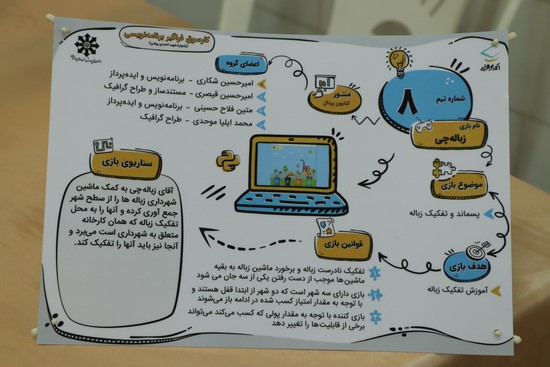 کارسوق فراگیر برنامه‌نویسی
شماره تیم
۸
نام بازی
زباله‌چی
موضوع بازی
پسماند و تفکیک زباله
هدف بازی
آموزش تفکیک زباله
منتور
اعضای گروه
امیرحسین شکاری - برنامه‌نویس و ایده‌پرداز
امیرحسین قیصری - مستندساز و طراح گرافیک
متین فلاح حسینی - برنامه‌نویس و ایده‌پرداز
محمد ایلیا موحدی - طراح گرافیک
سناریوی بازی
آقای زباله‌چی به کمک ماشین
شهرداری زباله ها را از سطح شهر
جمع آوری کرده و آنها را به محل
تفکیک زباله که همان کارخانه
متعلق به شهرداری است می‌برد و
آنجا نیز باید آنها را تفکیک کند.
قوانین بازی
تفکیک نادرست زباله و برخورد ماشین زباله به بقیه
ماشین‌ها موجب از دست رفتن یکی از سه جان می شود
بازی دارای سه شهر است که دو شهر از ابتدا قفل هستند و
با توجه به مقدار امتیاز کسب شده در ادامه باز می‌شوند
بازی کننده با توجه به مقدار پولی که کسب می‌کند می‌تواند
برخی از قابلیت‌ها را تغییر دهد